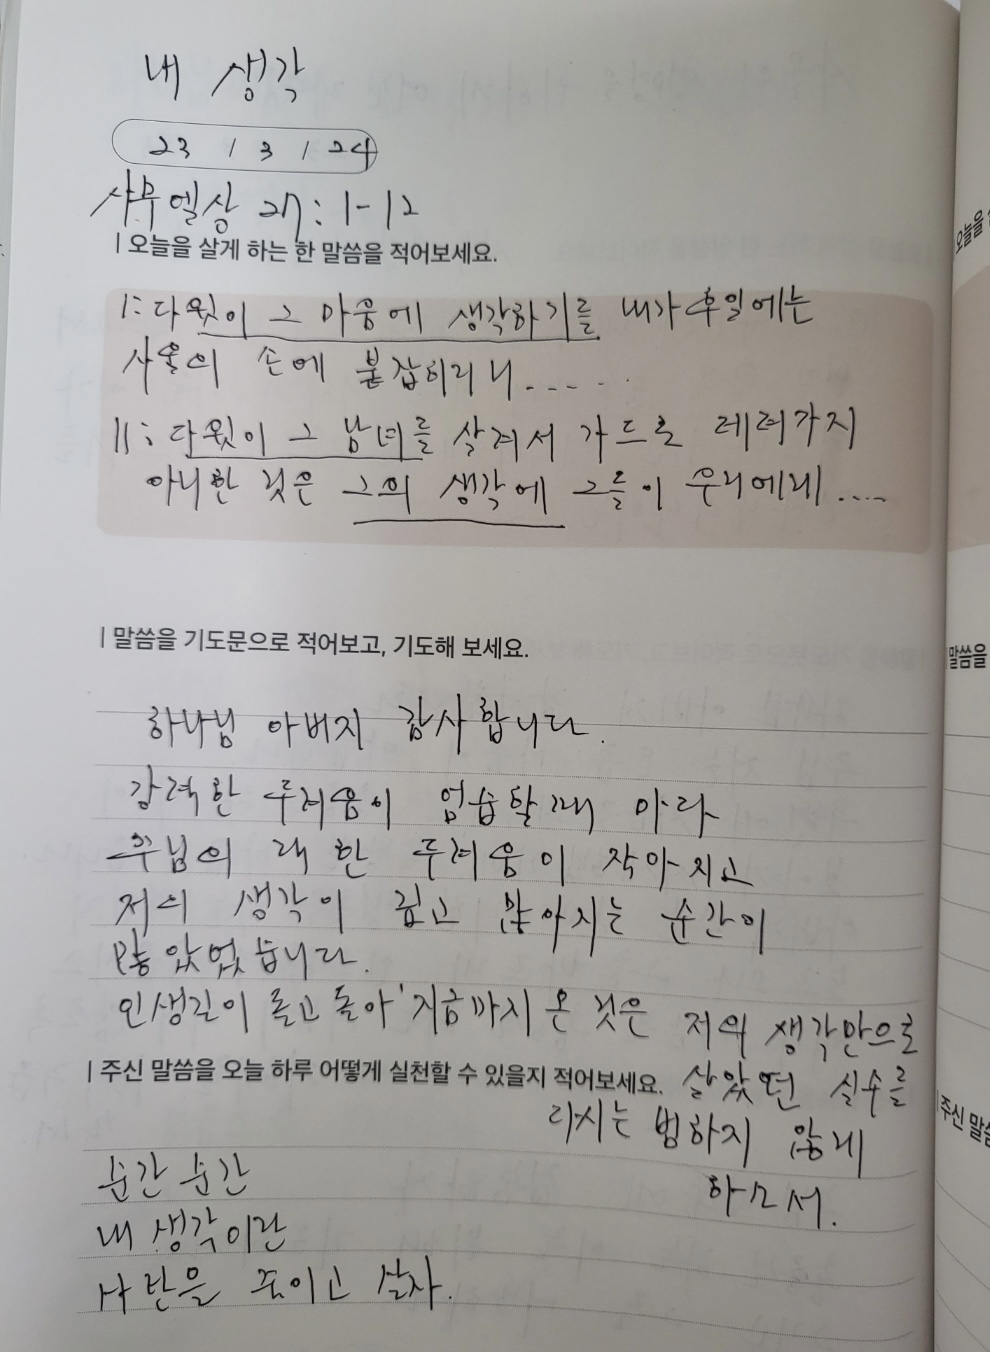 내 생각
23 / 3 / 24
사무엘상 27:1-12
| 오늘을 살게 하는 한 말씀을 적어보세요.
1: 다윗이 그 마음에 생각하기를 내가 후일에는
사울의 손에 붙잡히리니......
11: 다윗이 그 남녀를 살려서 가드로 데려가지
아니한 것은 그의 생각에 그들이 우리에게 ....
| 말씀을 기도문으로 적어보고, 기도해 보세요.
하나님 아버지 감사합니다.
강력한 두려움이 엄습할 때 마다
주님의 대한 두려움이 작아지고
저의 생각이 깊고 많아지는 순간이
많았었습니다.
인생길이 돌고 돌아 지금까지 온 것은 저의 생각만으로
| 주신 말씀을 오늘 하루 어떻게 실천할 수 있을지 적어보세요. 살았던 실수를
다시는 범하지 않게
하소서.
순간 순간
내 생각이란
사탄을 죽이고 살자.
오늘을
말씀을
주신 말씀